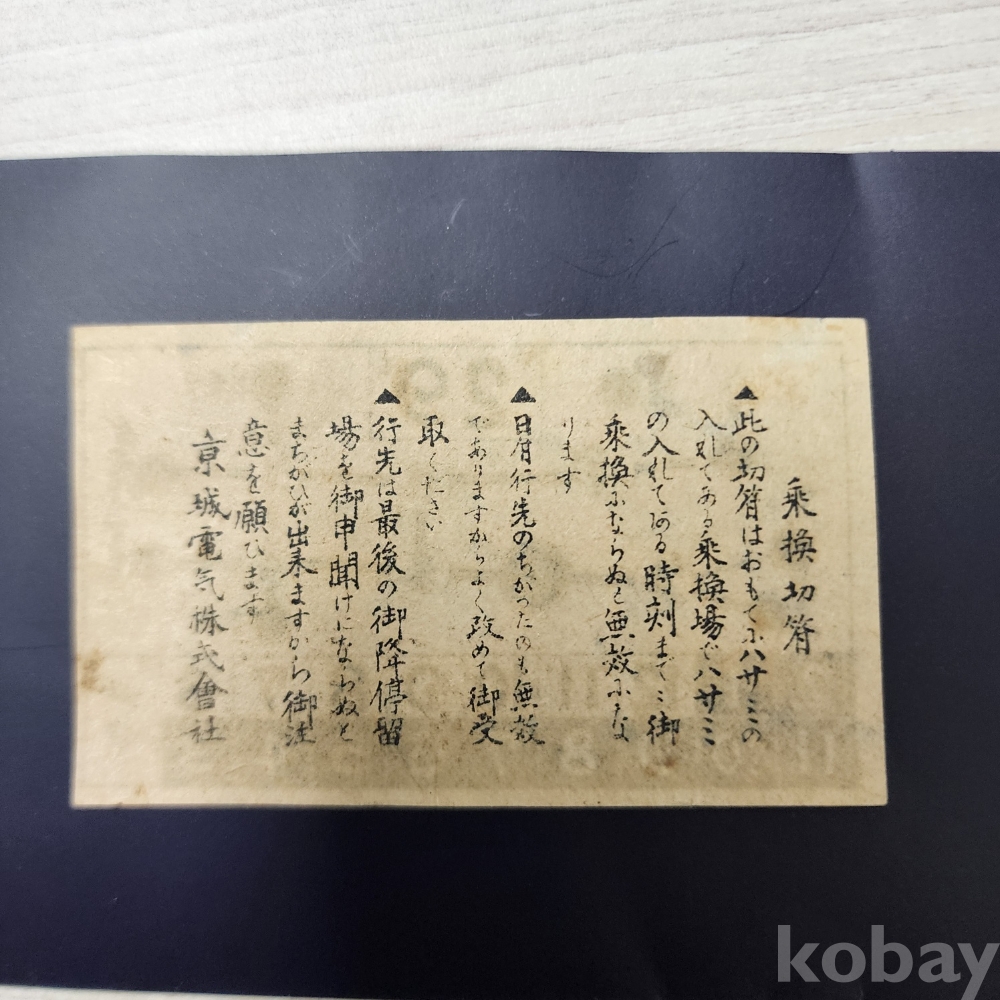 乗換切符
▲此の切符はおもてにハサミの
入れてある乗換場でハサミ
の入れてある時刻までニ御
乗換にならぬと無效にな
ります
▲日付行先のちがつたのも無效
でありますからよく改めて御受
取ください
▲行先は最後の御降停留
場を御申聞けにならぬと
まちがひが出来ますから御注
意を願ひます
京城電気株式會社
kobay